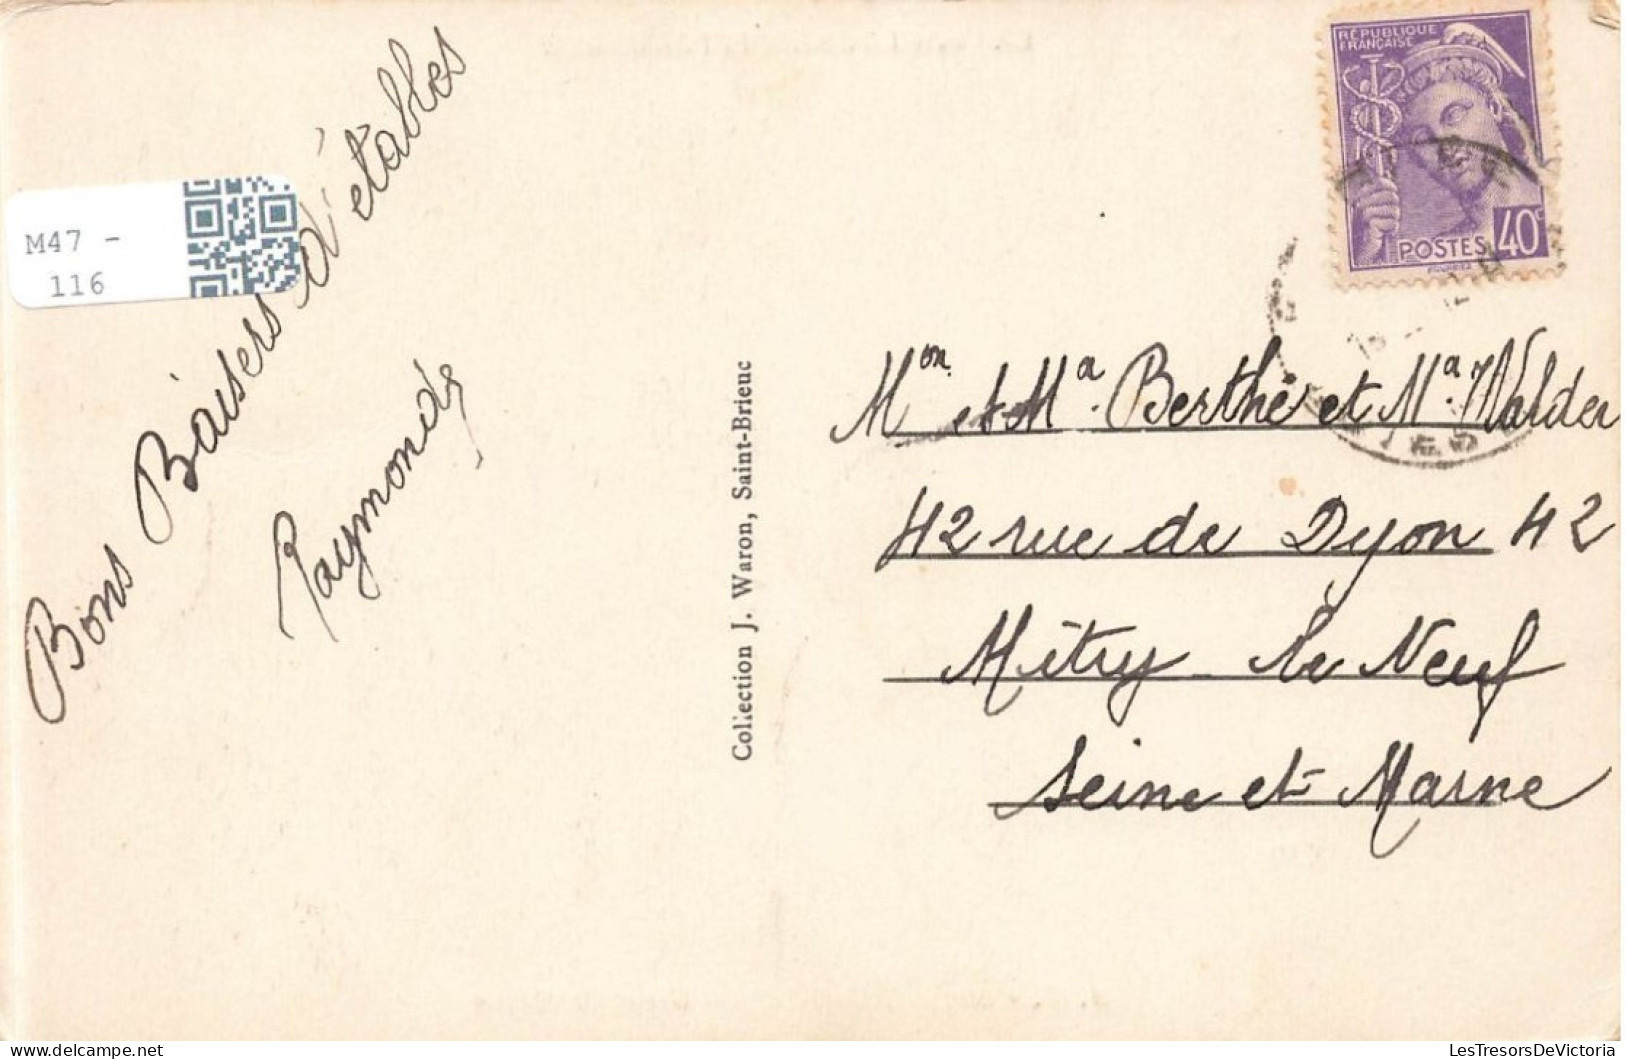 RÉPUBLIQUE
FRANÇAISE
POSTES 40c
M47 -
116
Bons Baisers d'étables
Raymonde
Collection J. Waron, Saint-Brieuc
Mon et Ma. Berthe et Ma. Walder
42 rue de Dyon 42
Mitry le Neuf
Seine et Marne
LesTresorsDeVictoria